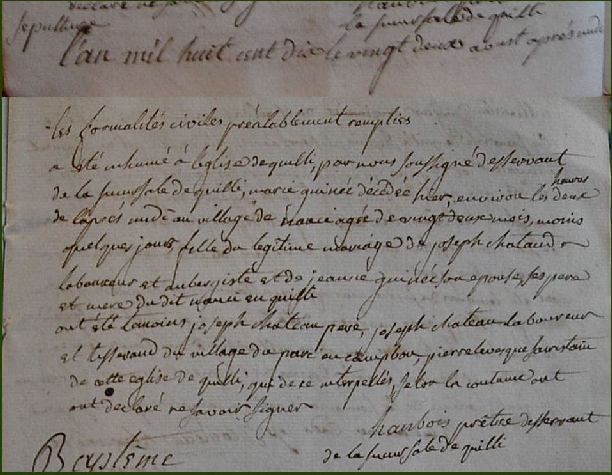 déclaré ne sa
la succursale de quilli
sepulture
l'an mil huit cent dix le vingt deux aoust aprés midi
les formalités civiles préalablement remplies
a été inhumé à l'eglise de quilli, par nous soussigné desservant
de la succursale de quilli, marie guinée décédée hier, environ les deux
heures
de l'aprés midi au village de agée de vingt deux mois, moins
quelques jours fille du legitime mariage de joseph chataud
laboureur et aubergiste et de jeanne guinée son epouse, ses pere
et mere du dit en quilli
ont été temoins joseph chateau pere, joseph chateau laboureur
et tisserand du village du parc en campbon, pierre levesque sacristain
de cette eglise de quilli, qui de ce interpellés, selon la coutume ont
ont declaré ne savoir signer
haubois prêtre desservant
de la succursale de quilli
Baptême